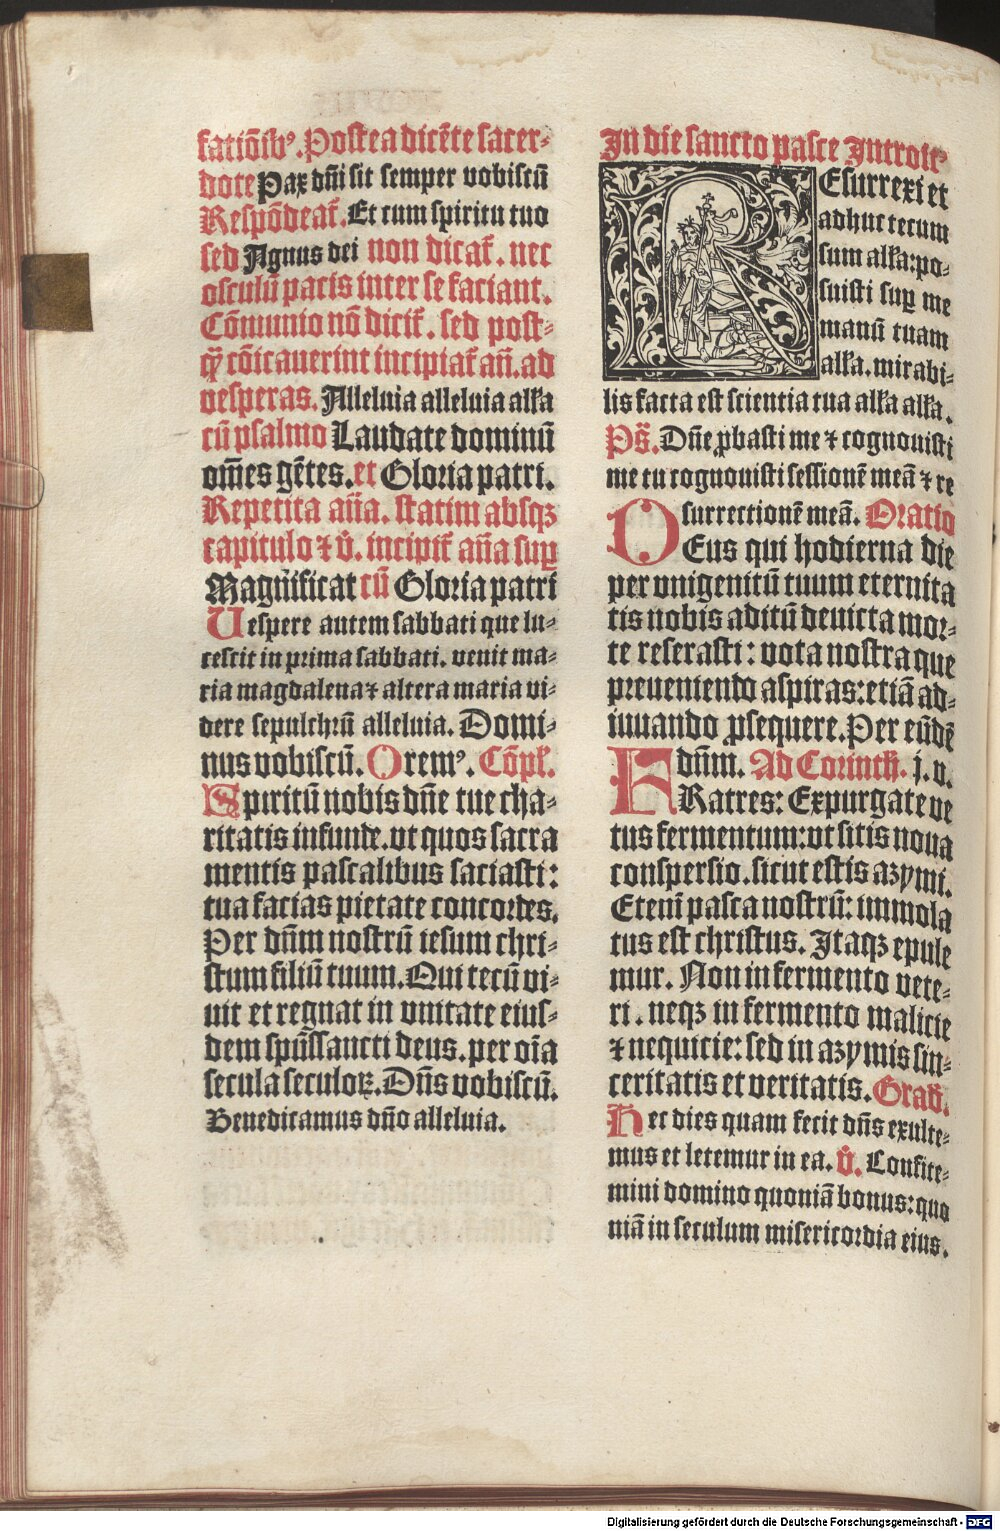 satiõib⁹. Postea dicẽte sacer-
dote Pax dñi sit semper vobiscũ
Respõdeat̃. Et cum spiritu tuo
sed Agnus dei non dicat̃. nec
osculũ pacis inter se faciant.
Cõmunio nõ dicit̃. sed post-
q̃ cõicauerint incipiat̃ añ. ad
vesperas. Alleluia alleluia alľa
cũ psalmo Laudate dominũ
om̃es gẽtes. et Gloria patri.
Repetita aña. statim absqꝫ
capitulo ⁊ v̊. incipit̃ aña sup̱
Magnificat cũ Gloria patri
Uespere autem sabbati que lu-
cescit in prima sabbati. venit ma-
ria magdalena ⁊ altera maria vi-
dere sepulchrũ alleluia. Domi-
nus vobiscũ. Orem⁹. Cõpľ.
Spiritũ nobis dñe tue cha-
ritatis infunde. vt quos sacra
mentis pascalibus saciasti:
tua facias pietate concordes.
Per dñm nostrũ iesum chri-
stum filiũ tuum. Qui tecũ vi-
uit et regnat in vnitate eius-
dem spũssancti deus. per oĩa
secula seculoꝝ. Dñs vobiscũ.
Benedicamus dño alleluia.
In die sancto pasce Introit⁹
REsurrexi et
adhuc tecum
sum alľa: po-
suisti sup̱ me
manũ tuam
alľa. mirabi-
lis facta est scientia tua alľa alľa.
Ps̃. Dñe ꝓbasti me ⁊ cognouisti
me tu cognouisti sessionẽ meã ⁊ re
surrectionẽ meã. Oratio
DEus qui hodierna die
per vnigenitũ tuum eternita
tis nobis aditũ deuicta mor-
te reserasti: vota nostra que
preueniendo aspiras: etiã ad-
iuuando ꝓsequere. Per eũdẽ
dñm. Ad Corinth. j. v.
FRatres: Expurgate ve
tus fermentum: vt sitis noua
conspersio. sicut estis azymi.
Etenĩ pasca nostrũ: immola
tus est christus. Itaqꝫ epule
mur. Non in fermento vete-
ri. neqꝫ in fermento malicie
⁊ nequicie: sed in azymis sin-
ceritatis et veritatis. Grad̃.
Hec dies quam fecit dñs exulte-
mus et letemur in ea. v̊. Confite-
mini domino quoniã bonus: quo
niã in seculum misericordia eius.
Digitalisierung gefördert durch die Deutsche Forschungsgemeinschaft - DFG